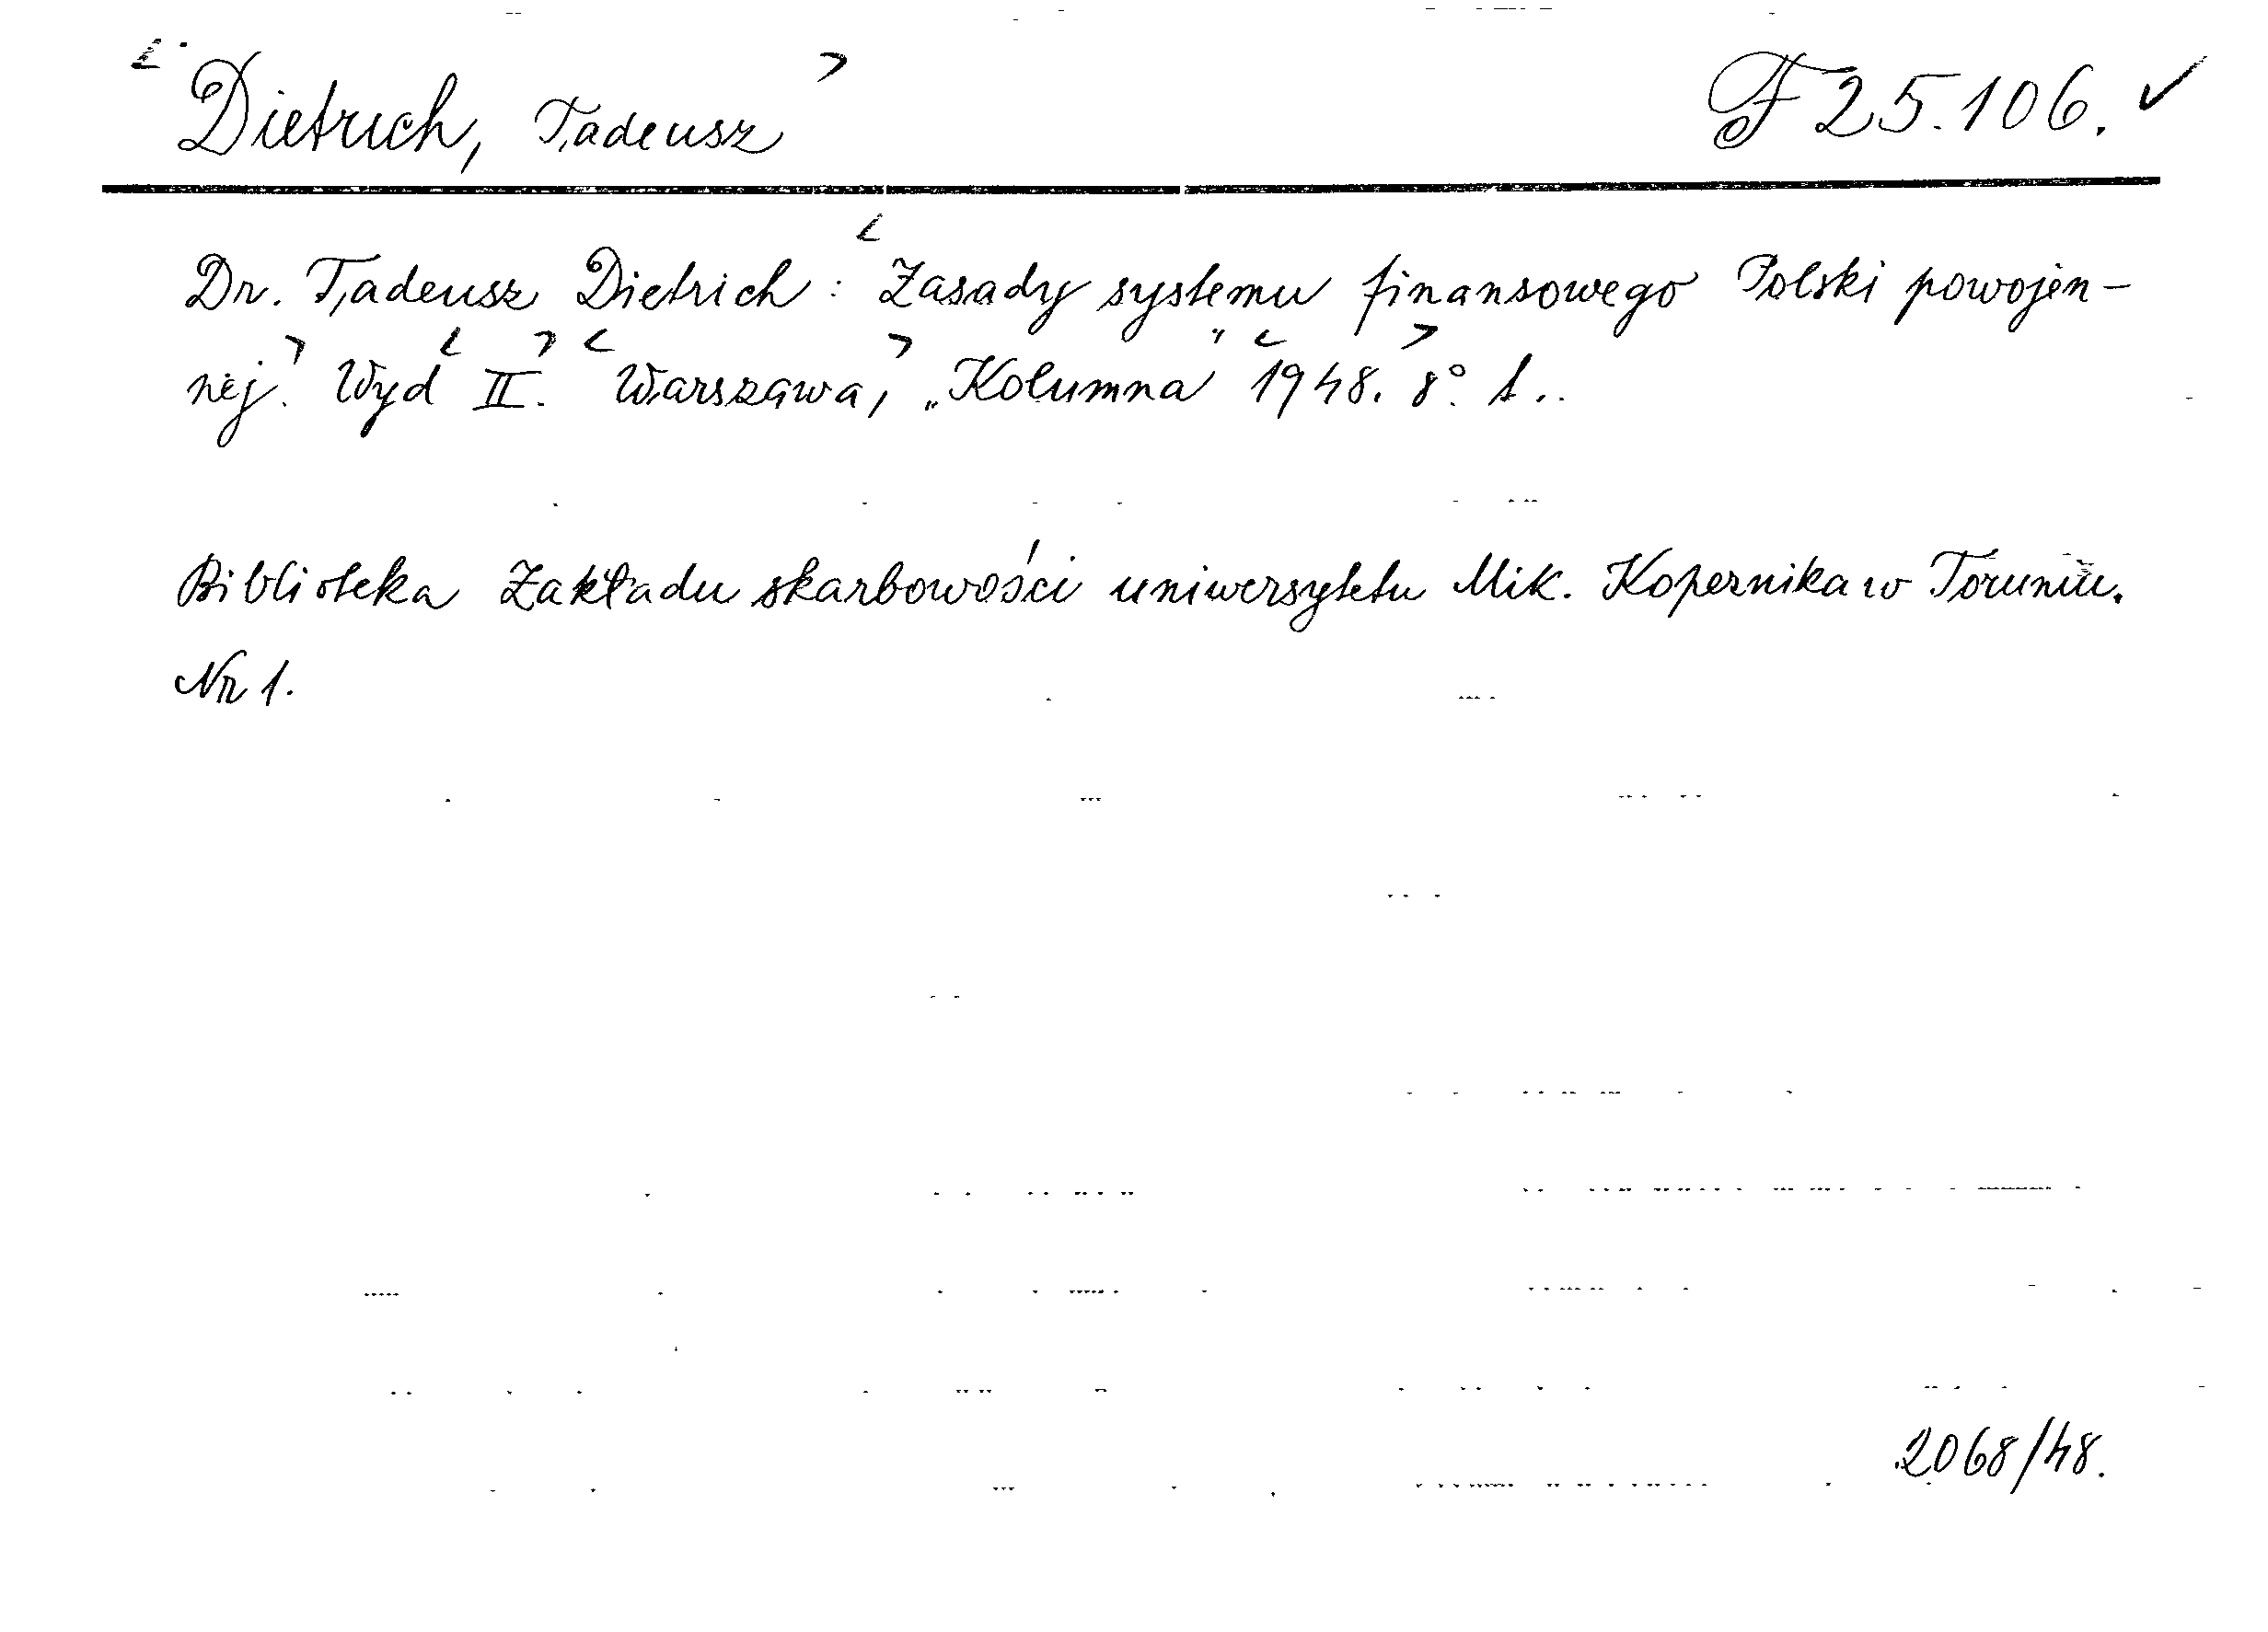 Dietrich, Tadeusz F 25.106. ✓
Dr. Tadeusz Dietrich: Zasady systemu finansowego Polski powojen-
nej. Wyd II. Warszawa, „Kolumna" 1948. 8° s..
Biblioteka Zakładu skarbowości uniwersytetu Mik. Kopernika w Toruniu.
Nr 1.
2068/48.